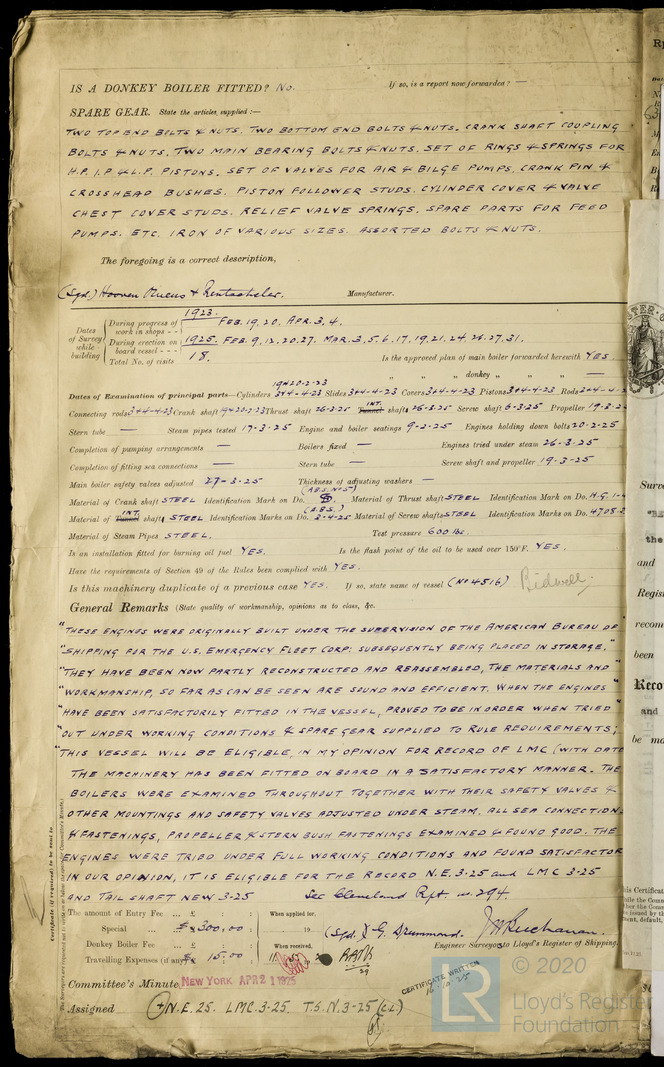 IS A DONKEY BOILER FITTED? No. If so, is a report now forwarded? —
SPARE GEAR. State the articles supplied :—
TWO TOP END BOLTS & NUTS. TWO BOTTOM END BOLTS & NUTS. CRANK SHAFT COUPLING
BOLTS & NUTS. TWO MAIN BEARING BOLTS & NUTS. SET OF RINGS & SPRINGS FOR
H.P. I.P & L.P. PISTONS. SET OF VALVES FOR AIR & BILGE PUMPS. CRANK PIN &
CROSSHEAD BUSHES. PISTON FOLLOWER STUDS. CYLINDER COVER & VALVE
CHEST COVER STUDS. RELIEF VALVE SPRINGS. SPARE PARTS FOR FEED
PUMPS. ETC. IRON OF VARIOUS SIZES. ASSORTED BOLTS & NUTS.
The foregoing is a correct description,
(Sgd) Hooven Owens & Rentschler. Manufacturer.
1923.
Dates of Survey while building
During progress of work in shops - - FEB. 19, 20, APR. 3, 4.
During erection on board vessel - - - 1925. FEB. 9, 12, 20, 27. MAR. 3, 5, 6, 17, 19, 21, 24, 26, 27, 31.
Total No. of visits 18. Is the approved plan of main boiler forwarded herewith YES.
" " donkey " " " —
19&20-2-23
Dates of Examination of principal parts—Cylinders 3&4-4-23 Slides 3&4-4-23 Covers 3&4-4-23 Pistons 3&4-4-23 Rods
Connecting rods 3&4-4-23 Crank shaft 19&20-2-23 Thrust shaft 26-2-25 INT. Tunnel shafts 26-3-25 Screw shaft 6-3-25 Propeller 19-3-2
Stern tube — Steam pipes tested 17-3-25 Engine and boiler seatings 9-2-25 Engines holding down bolts 20-2-25
Completion of pumping arrangements — Boilers fixed — Engines tried under steam 26-3-25
Completion of fitting sea connections — Stern tube — Screw shaft and propeller 19-3-25
Main boiler safety valves adjusted 27-3-25 Thickness of adjusting washers —
(A.B.S. No 5)
Material of Crank shaft STEEL Identification Mark on Do. Material of Thrust shaft STEEL Identification Mark on Do. N.G. 1-4
(A.B.S.)
Material of INT. Tunnel shaft STEEL Identification Marks on Do. 3-4-25 Material of Screw shafts STEEL Identification Marks on Do. 4708-2
Material of Steam Pipes STEEL. Test pressure 600 lbs.
Is an installation fitted for burning oil fuel YES. Is the flash point of the oil to be used over 150°F. YES.
Have the requirements of Section 49 of the Rules been complied with YES.
Is this machinery duplicate of a previous case YES. If so, state name of vessel (No 4516) Bidwell.
General Remarks (State quality of workmanship, opinions as to class, &c.
"THESE ENGINES WERE ORIGINALLY BUILT UNDER THE SUPERVISION OF THE AMERICAN BUREAU OF
"SHIPPING FOR THE U.S. EMERGENCY FLEET CORP: SUBSEQUENTLY BEING PLACED IN STORAGE."
"THEY HAVE BEEN NOW PARTLY RECONSTRUCTED AND REASSEMBLED, THE MATERIALS AND "
"WORKMANSHIP, SO FAR AS CAN BE SEEN ARE SOUND AND EFFICIENT. WHEN THE ENGINES "
"HAVE BEEN SATISFACTORILY FITTED IN THE VESSEL, PROVED TO BE IN ORDER WHEN TRIED "
"OUT UNDER WORKING CONDITIONS & SPARE GEAR SUPPLIED TO RULE REQUIREMENTS;
"THIS VESSEL WILL BE ELIGIBLE, IN MY OPINION FOR RECORD OF LMC (WITH DATE
THE MACHINERY HAS BEEN FITTED ON BOARD IN A SATISFACTORY MANNER. THE
BOILERS WERE EXAMINED THROUGHOUT TOGETHER WITH THEIR SAFETY VALVES &
OTHER MOUNTINGS AND SAFETY VALVES ADJUSTED UNDER STEAM. ALL SEA CONNECTION
& FASTENINGS, PROPELLER & STERN BUSH FASTENINGS EXAMINED & FOUND GOOD. THE
ENGINES WERE TRIED UNDER FULL WORKING CONDITIONS AND FOUND SATISFACTOR
IN OUR OPINION, IT IS ELIGIBLE FOR THE RECORD N.E. 3-25 and LMC 3-25
AND TAIL SHAFT NEW 3-25 See Cleveland Rpt. no. 294.
The amount of Entry Fee ... £ : : When applied for,
Special ... $ 300.00 : 19 (Sgd.) G. Drummond. J M Buchanan.
Donkey Boiler Fee ... £ : : When received, Engineer Surveyors to Lloyd's Register of Shipping.
Travelling Expenses (if any) $ 15.00
Committee's Minute NEW YORK APR 21 1925
CERTIFICATE WRITTEN
Assigned + N.E. 25. LMC. 3-25. T.S.N. 3-25 (C.L.)
© 2020
LR Lloyd's Register
Foundation